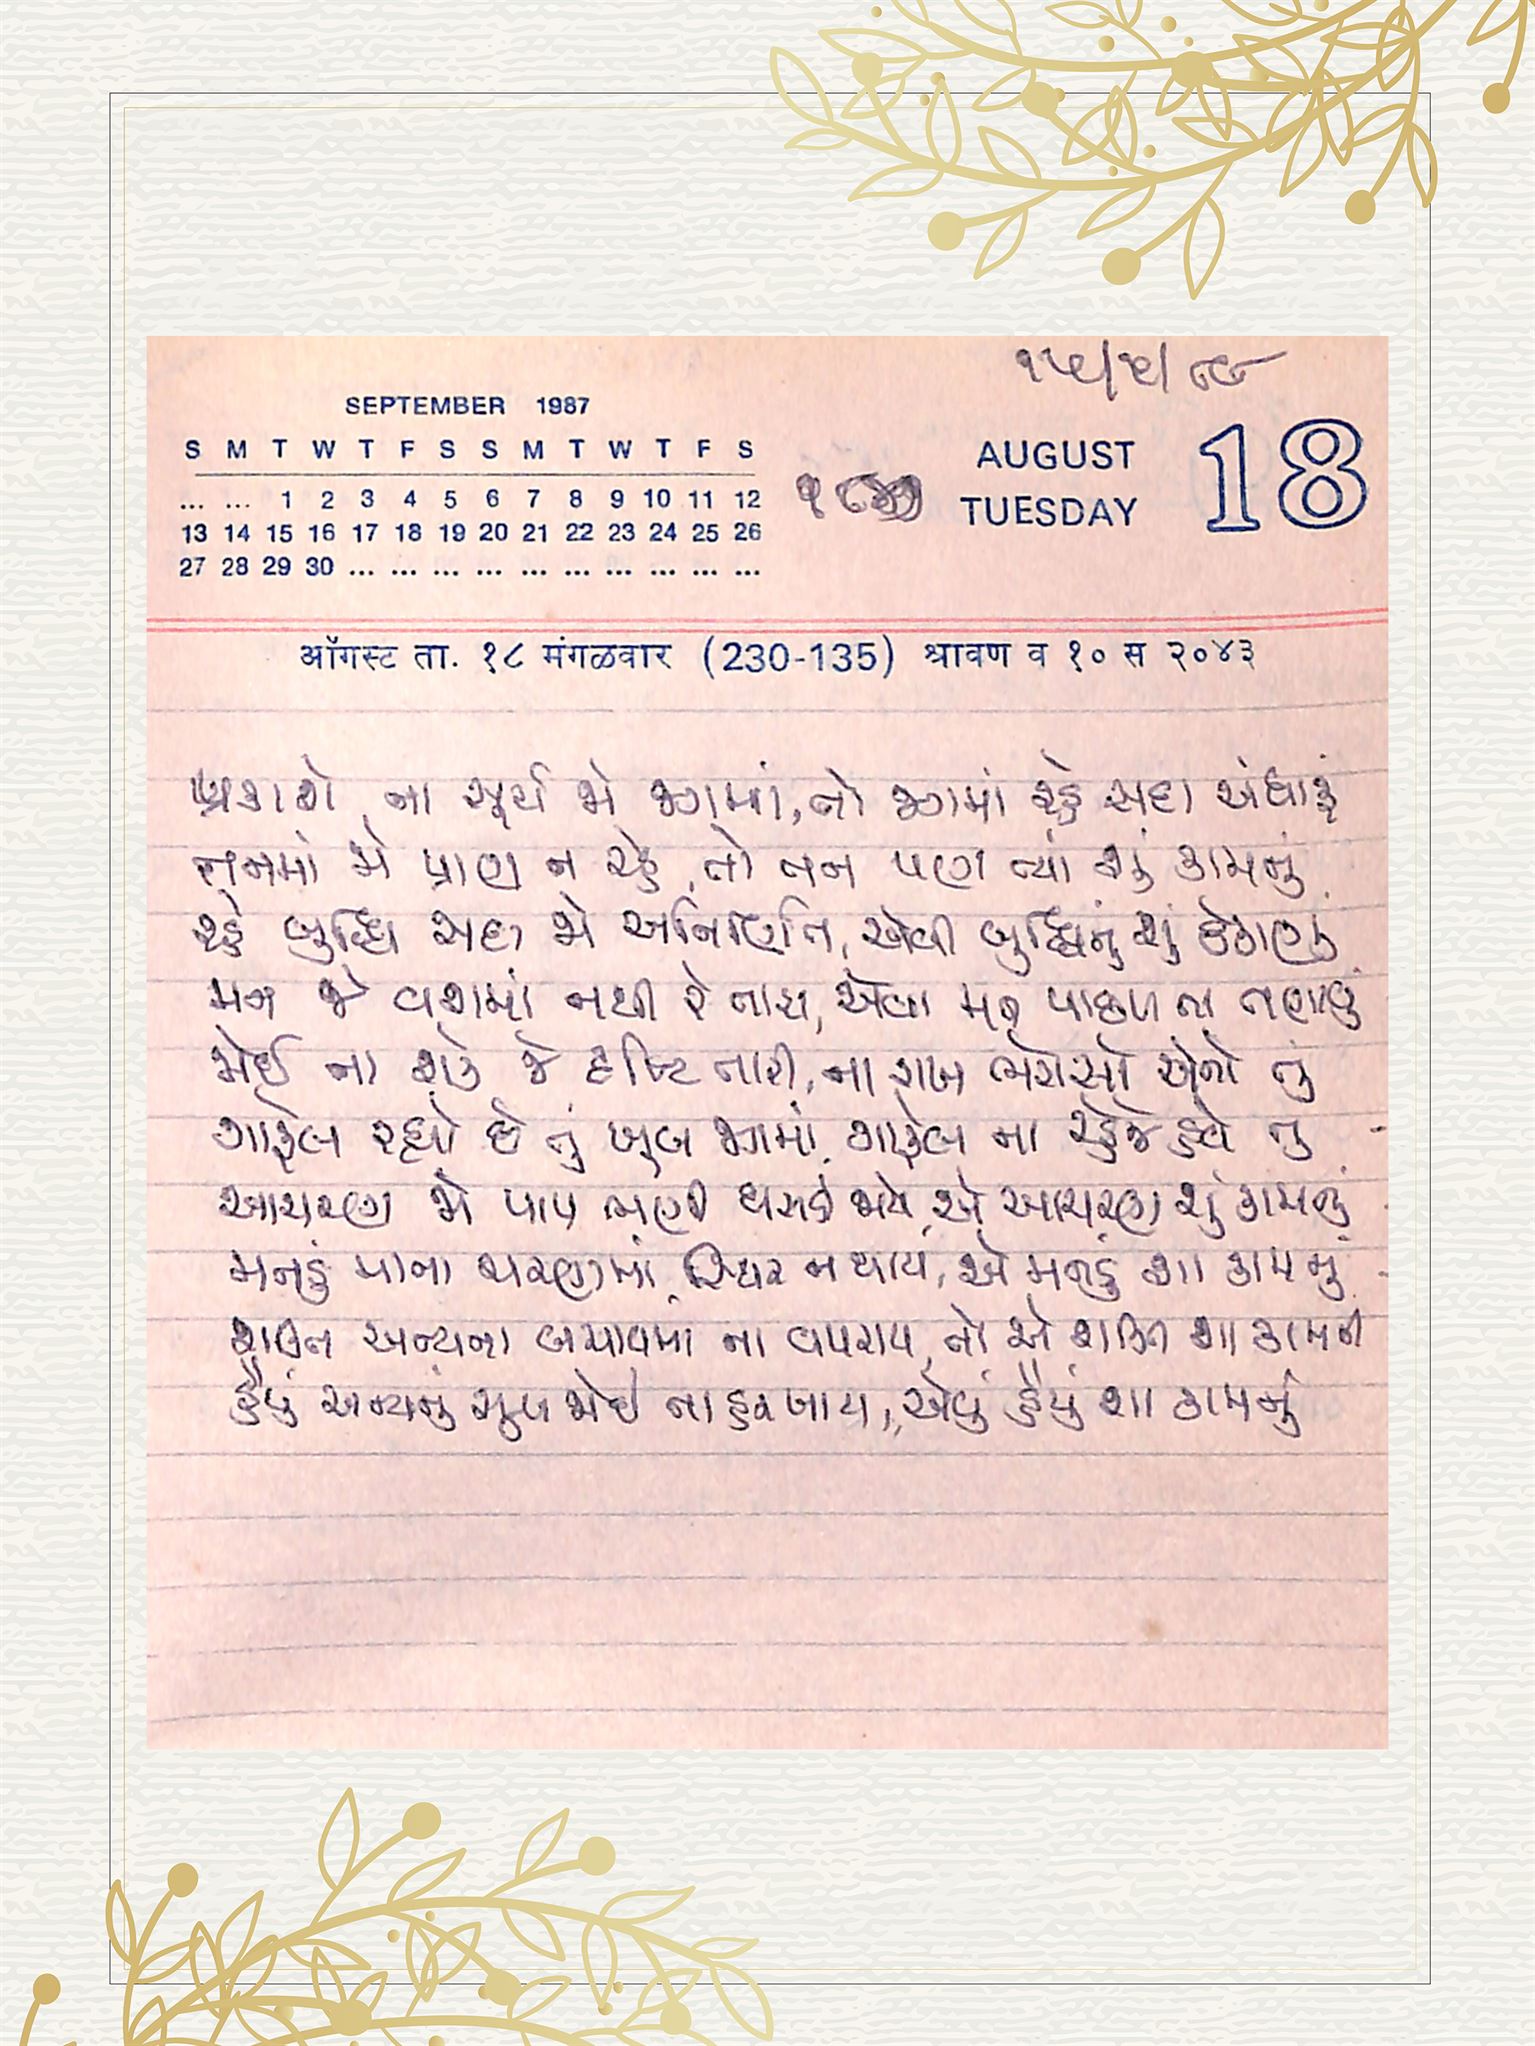 SEPTEMBER 1987
S M T W T F S S M T W T F S
... ... 1 2 3 4 5 6 7 8 9 10 11 12
13 14 15 16 17 18 19 20 21 22 23 24 25 26
27 28 29 30 ... ... ... ... ... ... ... ... ... ...
AUGUST
TUESDAY
18
ऑगस्ट ता. १८ मंगळवार (230-135) श्रावण व १० स २०४३
પ્રકાશે ના સૂર્ય જો જગમાં, તો જગમાં રહે સદા અંધારૂં
તનમાં જો પ્રાણ ન રહે, તો તન પણ ત્યાં શું કામનું
રહે બુદ્ધિ સદા જો અનિર્ણિત, એવી બુદ્ધિનું શું ઠેકાણું
મન જે વશમાં નથી રે તારા, એવા મન પાછળ ના તણાવું
જોઈ ના શકે જે દૃષ્ટિ તારી, ના રાખ ભરોસો એનો તું
ગાફેલ રહ્યો છે તું ખૂબ જગમાં, ગાફેલ ના રહેજે હવે તું
આચરણ જો પાપ ભણી ઘસડી જાયે, એ આચરણ શું કામનું
મનડું માના ચરણમાં સ્થિર ન થાય, એ મનડું શા કામનું
શક્તિ અન્યના બચાવમાં ના વપરાય, તો એ શક્તિ શા કામની
હૈયું અન્યનું દુઃખ જોઈ ના હચબચાય, એવું હૈયું શા કામનું